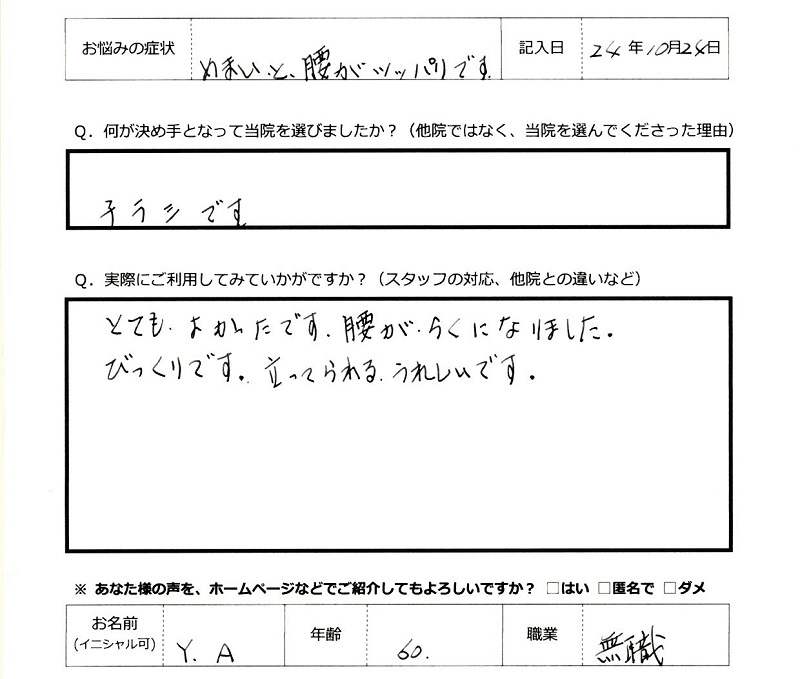 お悩みの症状 めまいと、腰がツッパリです 記入日 24年10月24日
Q．何が決め手となって当院を選びましたか？（他院ではなく、当院を選んでくださった理由）
チラシです
Q．実際にご利用してみていかがですか？（スタッフの対応、他院との違いなど）
とても、よかったです、腰が、らくになりました。
びっくりです。立ってられる、うれしいです。
※ あなた様の声を、ホームページなどでご紹介してもよろしいですか？ □はい □匿名で □ダメ
お名前 (イニシャル可) Y. A 年齢 60. 職業 無職